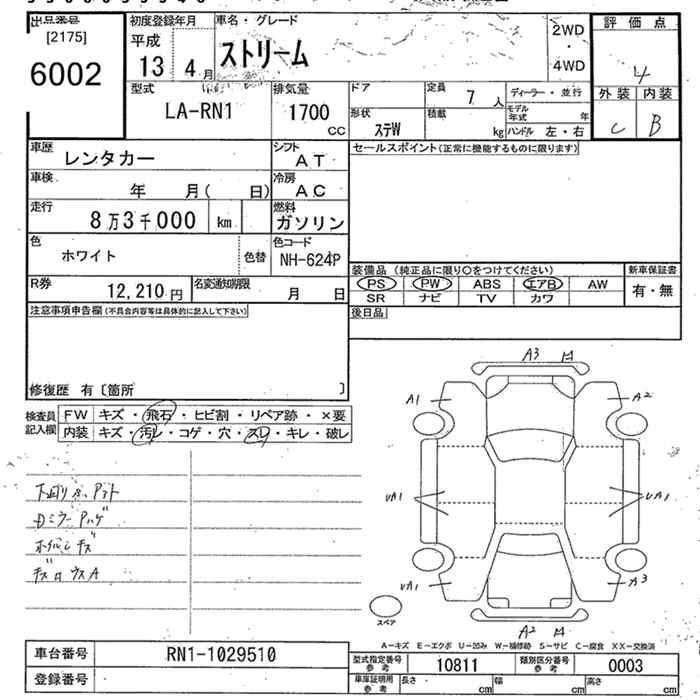 出品番号 初度登録年月 車名・グレード 2WD 評価点
[2175] 平成 ・ 4
6002 13 年 4 月 ストリーム 4WD 外装 内装
型式 排気量 ドア 定員 7 人 ディーラー・並行 C B
LA-RN1 1700 cc 形状 ステW 積載 kg モデル年式 年
ハンドル 左・右
車歴 レンタカー シフト AT セールスポイント(正常に機能するものに限ります)
車検 年 月( 日) 冷房 AC
走行 8万3千000 km 燃料 ガソリン
色 ホワイト 色替 色コード NH-624P
装備品(純正品に限り○をつけてください) 新車保証書
R券 12,210円 名変通知期限 月 日 PS PW ABS エアB AW 有・無
SR ナビ TV カワ
注意事項申告欄(不具合内容等は具体的に記入して下さい) 後日品
修復歴 有〔箇所 〕
検査員記入欄 FW キズ・飛石・ヒビ割・リペア跡・×要
内装 キズ・汚レ・コゲ・穴・スレ・キレ・破レ
A3
A1 A2
UA1 UA1
UA1 A3
A2
スペア
A-キズ E-エクボ U-凹み W-補修跡 S-サビ C-腐食 XX-交換済
車台番号 RN1-1029510 型式指定番号 参考 10811 類別区分番号 参考 0003
登録番号 車庫証明用 参考 長さ cm 幅 cm 高さ cm